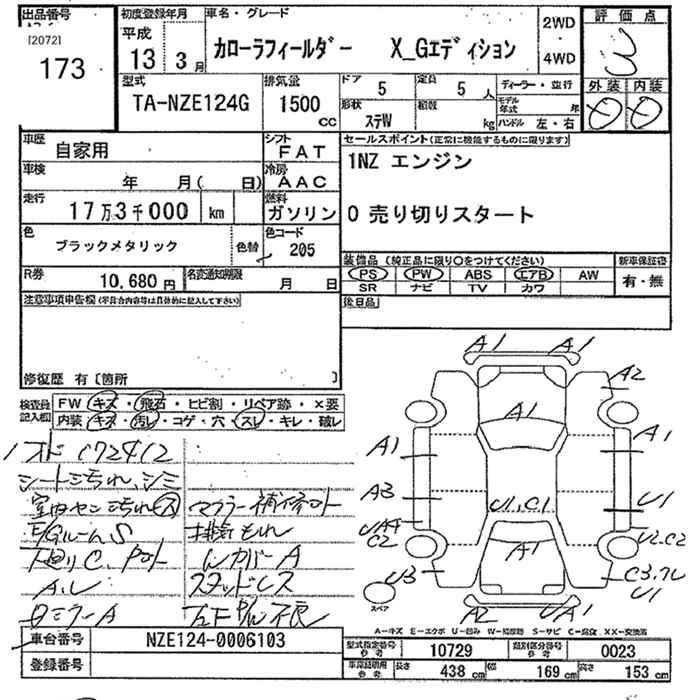 出品番号
[2072]
173
初度登録年月
平成
13年 3月
車名・グレード
カローラフィールダー X_Gエディション
2WD
・
4WD
評価点
3
外装 内装
D D
型式
TA-NZE124G
排気量
1500
cc
ドア
5
定員
5人
形状
ステW
積載
kg
ディーラー・並行
モデル年式 年
ハンドル 左・右
車歴
自家用
シフト
FAT
車検
年 月( 日)
冷房
AAC
走行
17万3千000 km
燃料
ガソリン
色
ブラックメタリック
色替
色コード
205
R券
10,680円
名変通知期限
月 日
セールスポイント(正常に機能するものに限ります)
1NZ エンジン
0 売り切りスタート
装備品(純正品に限り○をつけてください)
新車保証書
PS PW ABS エアB AW
SR ナビ TV カワ
有・無
後日品
注意事項申告欄(不具合内容等は具体的に記入して下さい)
修復歴 有〔箇所 〕
検査員記入欄
FW キズ・飛石・ヒビ割・リペア跡・×要
内装 キズ・汚レ・コゲ・穴・スレ・キレ・破レ
シート汚れ、シミ
マフラー補修
排気もれ
下回りC
スタッドレス
A1
A1
A2
A1
A1
A1
A3
U1,C1
U1
C2
U2,C2
A1
U3
U1
A2
スペア
A-キズ E-エクボ U-凹み W-補修跡 S-サビ C-腐食 XX-交換済
車台番号
NZE124-0006103
登録番号
型式指定番号
参考
10729
類別区分番号
参考
0023
車庫証明用
参考
長さ
438 cm
幅
169 cm
高さ
153 cm